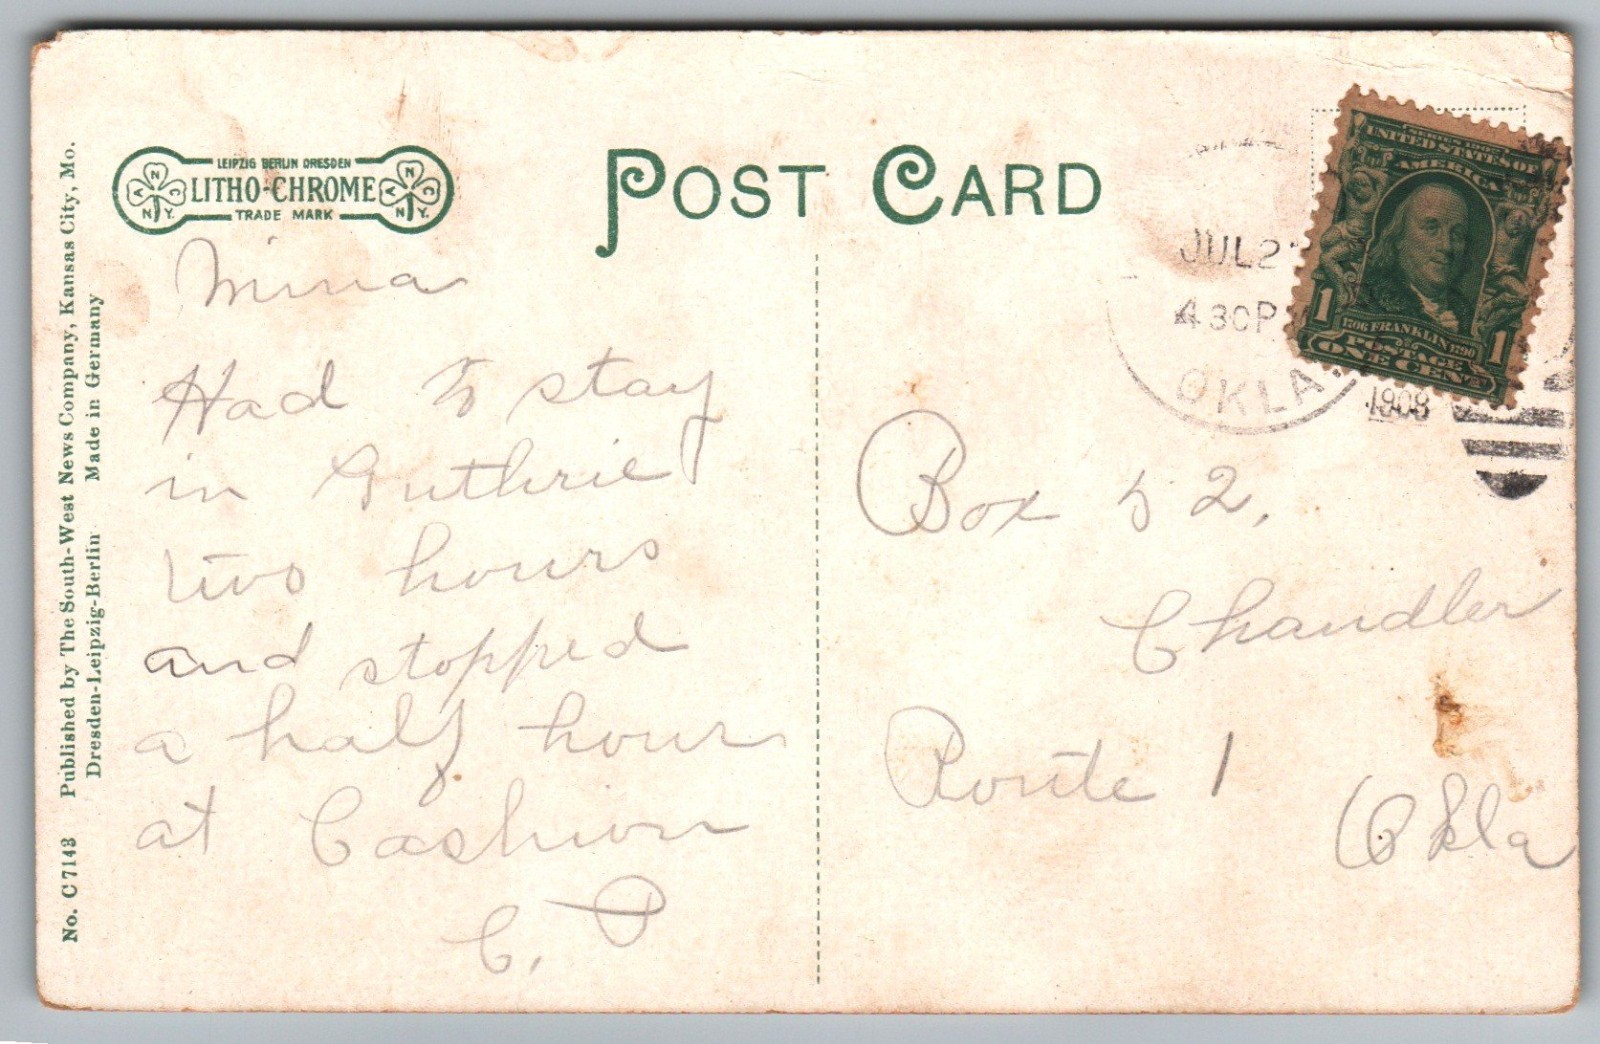 LEIPZIG BERLIN DRESDEN
LITHO-CHROME
TRADE MARK
A N C
N.Y.
A N C
N.Y.
POST CARD
No. C7143 Published by The South-West News Company, Kansas City, Mo.
Dresden-Leipzig-Berlin Made in Germany
Mina
Had to stay
in Guthrie
two hours
and stopped
a half hour
at Cashion
C. P
JUL 2
4 30 P
OKLA.
1908
SERIES 1902
UNITED STATES OF
AMERICA
1 1706 FRANKLIN 1790 1
POSTAGE
ONE CENT
Box 52,
Chandler
Route 1
Okla